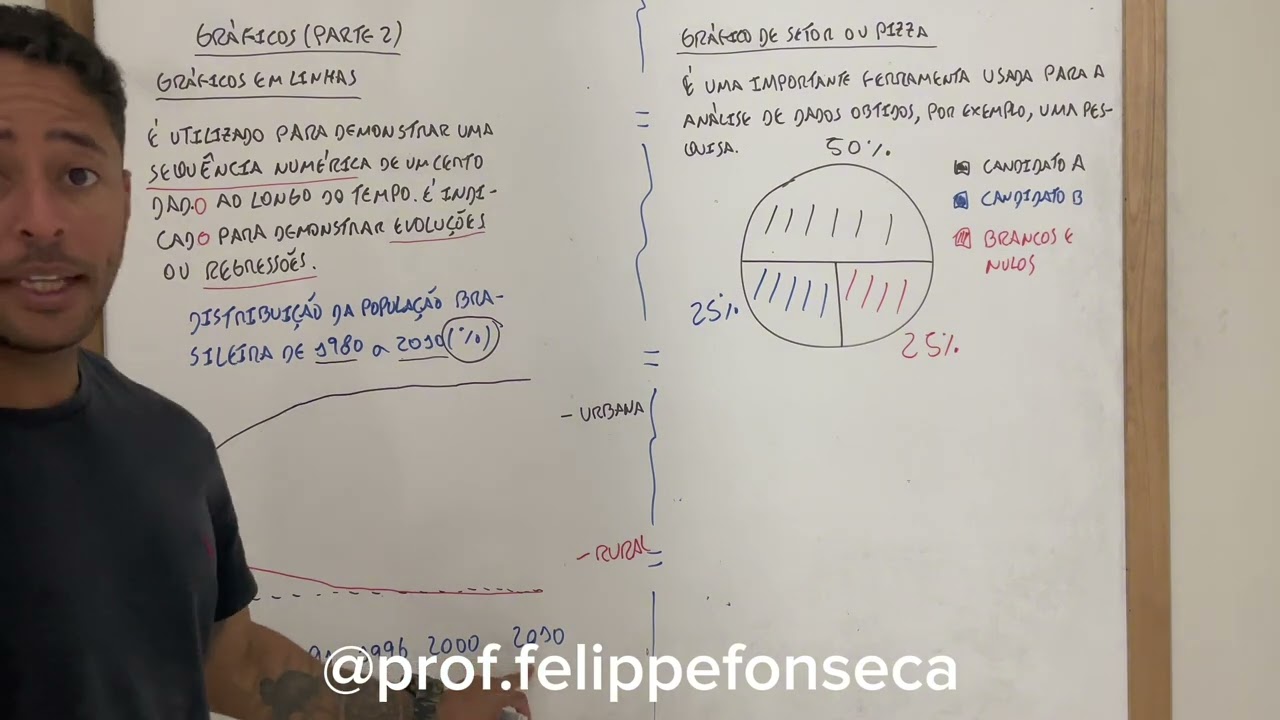 GRÁFICOS (PARTE 2)
GRÁFICOS EM LINHAS
É UTILIZADO PARA DEMONSTRAR UMA
SEQUÊNCIA NUMÉRICA DE UM CERTO
DADO AO LONGO DO TEMPO. É INDI-
CADO PARA DEMONSTRAR EVOLUÇÕES
OU REGRESSÕES.
DISTRIBUIÇÃO DA POPULAÇÃO BRA-
SILEIRA DE 1980 a 2010 (%)
- URBANA
- RURAL
1996 2000 2010
GRÁFICO DE SETOR OU PIZZA
É UMA IMPORTANTE FERRAMENTA USADA PARA A
ANÁLISE DE DADOS OBTIDOS, POR EXEMPLO, UMA PES-
QUISA.
50%
25%
25%
CANDIDATO A
CANDIDATO B
BRANCOS E
NULOS
@prof.felippefonseca